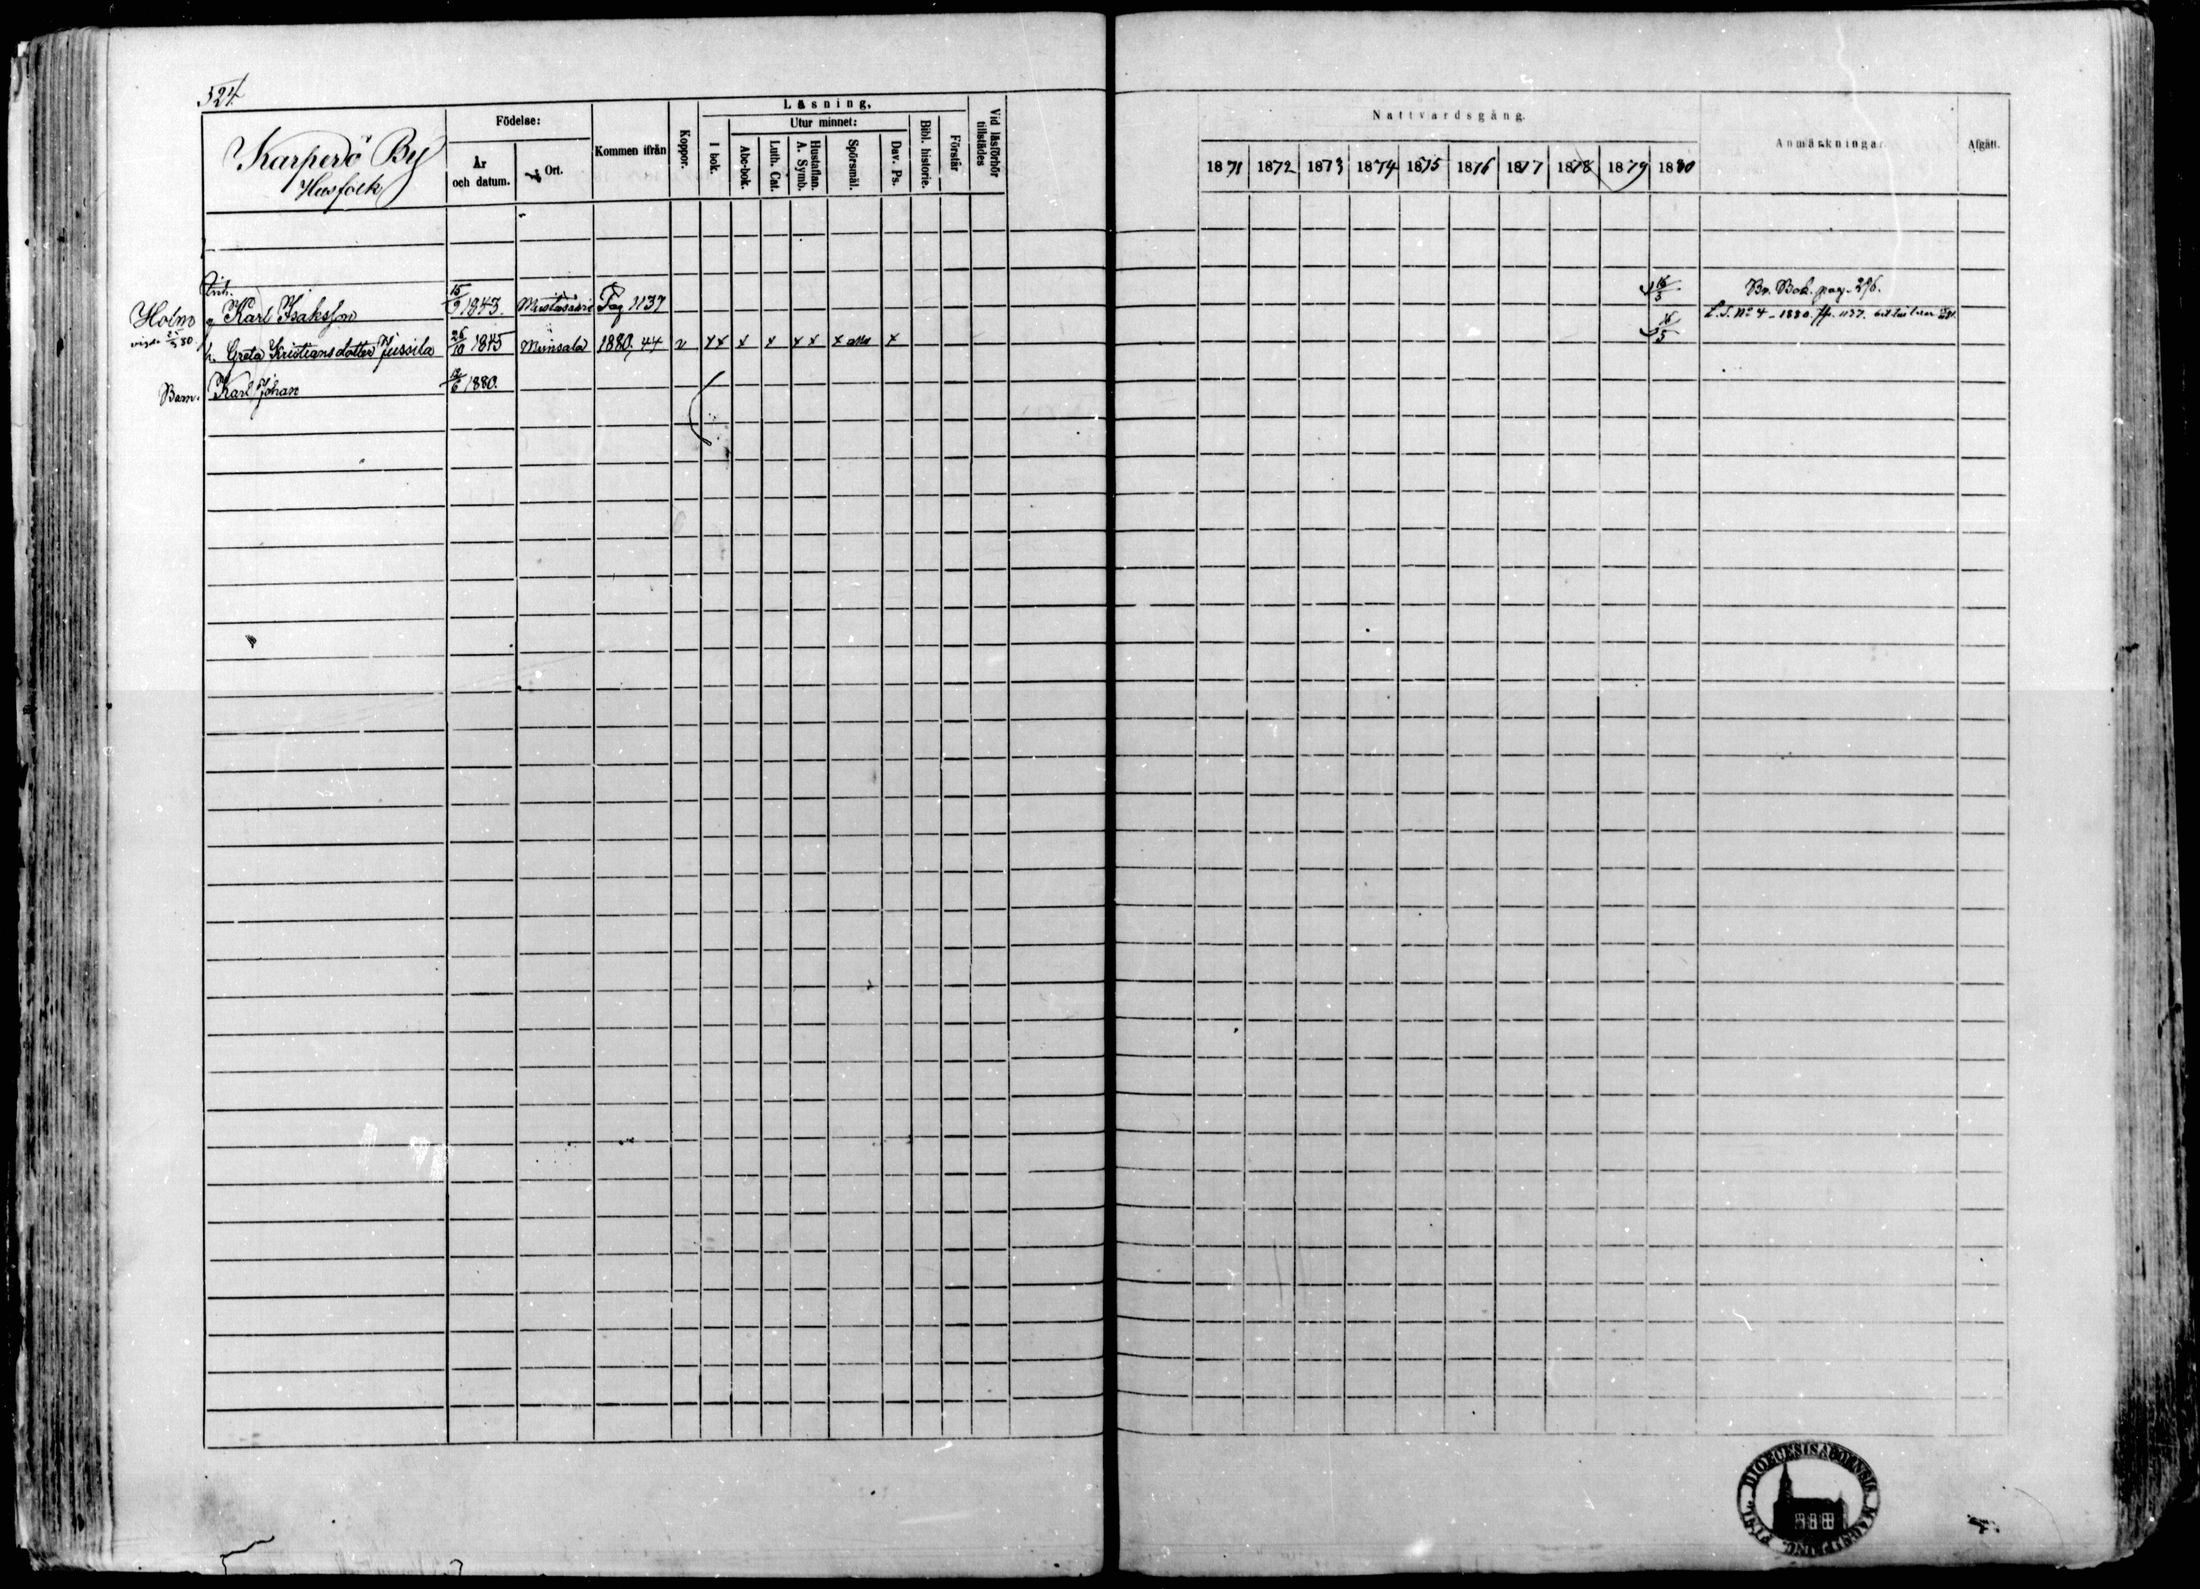 324.
Karperö By
Husfolk
Födelse:
År och datum.
Ort.
Kommen ifrån
Koppor.
Läsning,
I bok.
Utur minnet:
Abc-bok.
Luth. Cat.
Hustaflan. A. Symb.
Spörsmål.
Dav. Ps.
Bibl. historie.
Förstår
Vid läsförhör tillstädes
Nattvardsgång.
1871 1872 1873 1874 1875 1876 1877 1878 1879 1880
Anmärkningar.
Afgått.
Holm Karl Isaksson 15/9 1843. Mustasaari Pag 1137 16/5 Br. Bok. pag. 296.
L. S. No 4 - 1880. 1137.
vigde 25/3 80 h. Greta Kristiansdotter Jussila 26/10 1845 Munsala 1880, 44 v x x x x x x x x 16/5
Barn. Karl Johan 12/6 1880.
DIOECESIS ABOENSIS